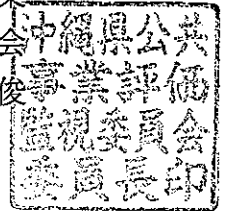 会
俊
沖縄県公共
事業評価
監視委員会
委員長印